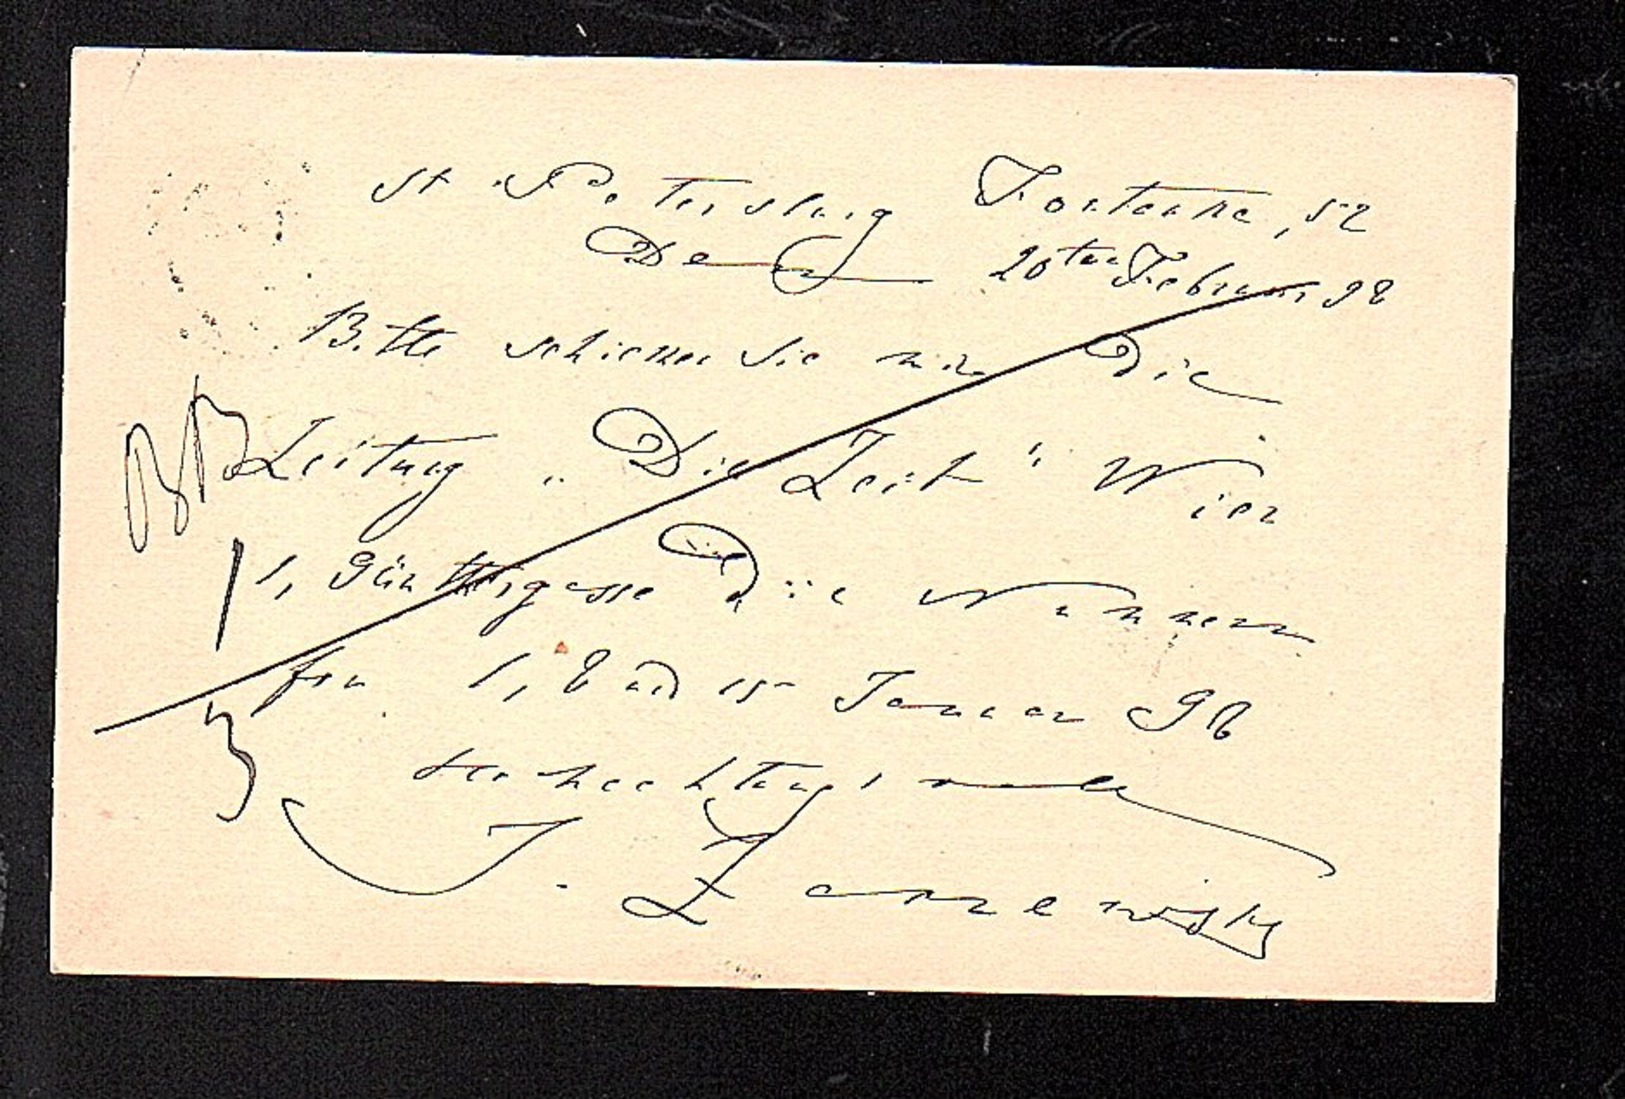 St Petersburg Fontanka, 52
Den 20ten Februar 98
Bitte schicken Sie mir Die
Zeitung „Die Zeit“ Wien
1, Günthergasse Die Nummern
fon 1, 8 und 15 Januar 98
Hochachtungsvoll
J.